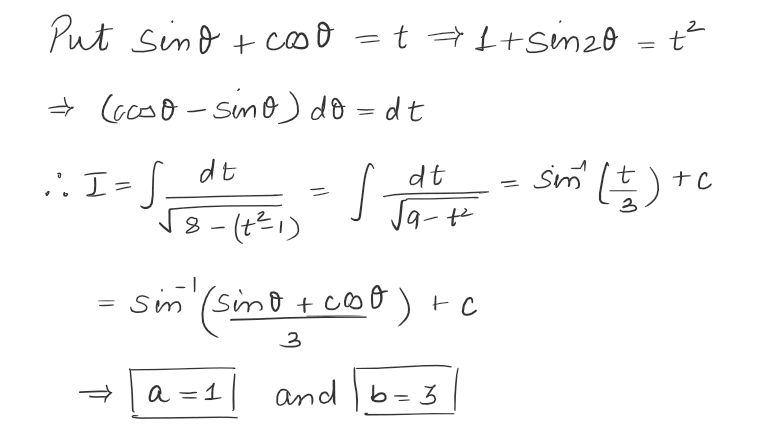 Put sinθ + cosθ = t ⇒ 1+sin2θ = t²
⇒ (cosθ – sinθ) dθ = dt
∴ I = ∫ dt/√(8 – (t²–1)) = ∫ dt/√(9 – t²) = sin⁻¹(t/3) + c
= sin⁻¹((sinθ + cosθ)/3) + c
⇒ a = 1 and b = 3